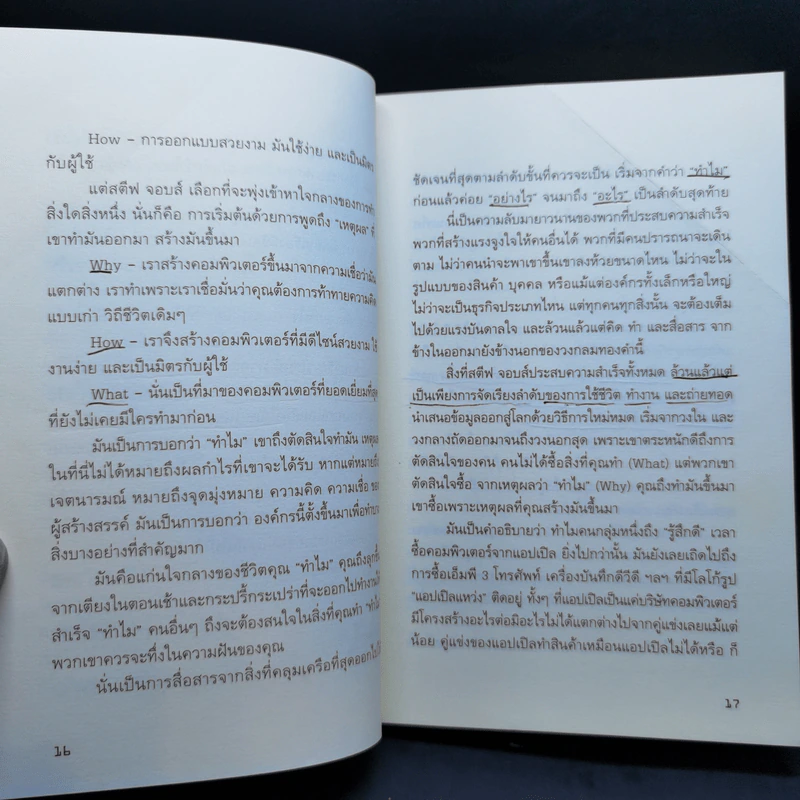 How – การออกแบบสวยงาม มันใช้ง่าย และเป็นมิตร
กับผู้ใช้
แต่สตีฟ จอบส์ เลือกที่จะพุ่งเข้าหาใจกลางของการทำ
สิ่งใดสิ่งหนึ่ง นั่นก็คือ การเริ่มต้นด้วยการพูดถึง "เหตุผล"
เขาทำมันออกมา สร้างมันขึ้นมา
Why – เราสร้างคอมพิวเตอร์ขึ้นมาจากความเชื่อว่ามัน
แตกต่าง เราทำเพราะเราเชื่อมั่นว่าคุณต้องการท้าทายความคิด
แบบเก่า วิถีชีวิตเดิมๆ
How – เราจึงสร้างคอมพิวเตอร์ที่มีดีไซน์สวยงาม ใช้
งานง่าย และเป็นมิตรกับผู้ใช้
What – นั่นเป็นที่มาของคอมพิวเตอร์ที่ยอดเยี่ยมที่สุด
ที่ยังไม่เคยมีใครทำมาก่อน
มันเป็นการบอกว่า "ทำไม" เขาถึงตัดสินใจทำมัน เหตุผล
ในที่นี้ไม่ได้หมายถึงผลกำไรที่เขาจะได้รับ หากแต่หมายถึง
เจตนารมณ์ หมายถึงจุดมุ่งหมาย ความคิด ความเชื่อ ของ
ผู้สร้างสรรค์ มันเป็นการบอกว่า องค์กรนี้ตั้งขึ้นมาเพื่อทำบาง
สิ่งบางอย่างที่สำคัญมาก
มันคือแก่นใจกลางของชีวิตคุณ "ทำไม" คุณถึงลุกขึ้น
จากเตียงในตอนเช้าและกระปรี้กระเปร่าที่จะออกไปทำงานให้
สำเร็จ "ทำไม" คนอื่นๆ ถึงจะต้องสนใจในสิ่งที่คุณทำ "ทำไม"
พวกเขาควรจะทึ่งในความฝันของคุณ
นั่นเป็นการสื่อสารจากสิ่งที่คลุมเครือที่สุดออกไป
16
ชัดเจนที่สุดตามลำดับขั้นที่ควรจะเป็น เริ่มจากคำว่า "ทำไม"
ก่อนแล้วค่อย "อย่างไร" จนมาถึง "อะไร" เป็นลำดับสุดท้าย
นี่เป็นความลับมายาวนานของพวกที่ประสบความสำเร็จ
พวกที่สร้างแรงจูงใจให้คนอื่นได้ พวกที่มีคนปรารถนาจะเดิน
ตาม ไม่ว่าคนนำจะพาเขาขึ้นเขาลงห้วยขนาดไหน ไม่ว่าจะใน
รูปแบบของสินค้า บุคคล หรือแม้แต่องค์กรทั้งเล็กหรือใหญ่
ไม่ว่าจะเป็นธุรกิจประเภทไหน แต่ทุกคนทุกสิ่งนั้น จะต้องเต็ม
ไปด้วยแรงบันดาลใจ และล้วนแล้วแต่คิด ทำ และสื่อสาร จาก
ข้างในออกมายังข้างนอกของวงกลมทองคำนี้
สิ่งที่สตีฟ จอบส์ประสบความสำเร็จทั้งหมด ล้วนแล้วแต่
เป็นเพียงการจัดเรียงลำดับของการใช้ชีวิต ทำงาน และถ่ายทอด
นำเสนอข้อมูลออกสู่โลกด้วยวิธีการใหม่หมด เริ่มจากวงใน และ
วงกลางถัดออกมาจนถึงวงนอกสุด เพราะเขาตระหนักดีถึงการ
ตัดสินใจของคน คนไม่ได้ซื้อสิ่งที่คุณทำ (What) แต่พวกเขา
ตัดสินใจซื้อ จากเหตุผลว่า "ทำไม" (Why) คุณถึงทำมันขึ้นมา
เขาซื้อเพราะเหตุผลที่คุณสร้างมันขึ้นมา
มันเป็นคำอธิบายว่า ทำไมคนกลุ่มหนึ่งถึง "รู้สึกดี" เวลา
ซื้อคอมพิวเตอร์จากแอปเปิล ยิ่งไปกว่านั้น มันยังเลยเถิดไปถึง
การซื้อเอ็มพี 3 โทรศัพท์ เครื่องบันทึกดีวีดี ฯลฯ ที่มีโลโก้รูป
"แอปเปิลแหว่ง" ติดอยู่ ทั้งๆ ที่แอปเปิลเป็นแค่บริษัทคอมพิวเตอร์
มีโครงสร้างอะไรต่อมิอะไรไม่ได้แตกต่างไปจากคู่แข่งเลยแม้แต่
น้อย คู่แข่งของแอปเปิลทำสินค้าเหมือนแอปเปิลไม่ได้หรือ ก็
17